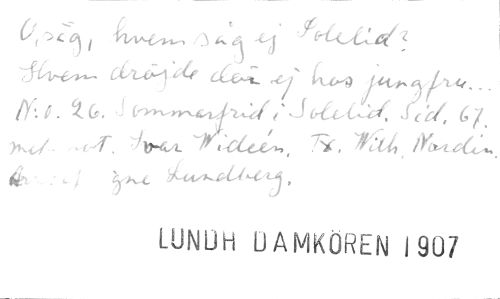 O, säg, hvem såg ej Solelid?
Hvem dröjde där ej hos jungfru...
N:o. 26. Sommarfrid i Solelid. Sid. 67.
mel. not. Ivar Widéen. Tx. Wilh. Nordin.
Lundberg.
LUNDH DAMKÖREN 1907